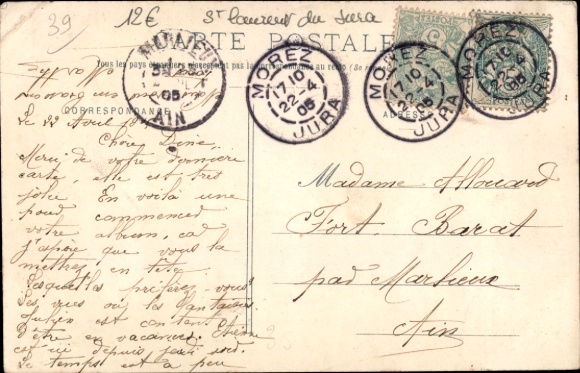 39 12€ St Laurent du Jura
CARTE POSTALE
Tous les pays étrangers n'acceptent pas la correspondance au recto
CORRESPONDANCE
ADRESSE
MOREZ
17 10
22-4
05
JURA
MOREZ
17 10
22-4
05
JURA
MOREZ
17 10
22-4
05
JURA
05
AIN
Le 22 Avril
Chère
Merci de votre dernière
carte, elle est très
jolie. En voilà une
pour commencer
votre album, car
j'espère que vous la
mettrez en tête.
Lesquelles préférez-vous
les vues ou les fantaisies
Julien est content
d'être en vacances. Etienne
est ici depuis jeudi soir.
Le temps est à peu
Madame Allouard
Fort Barat
par Marlieux
Ain